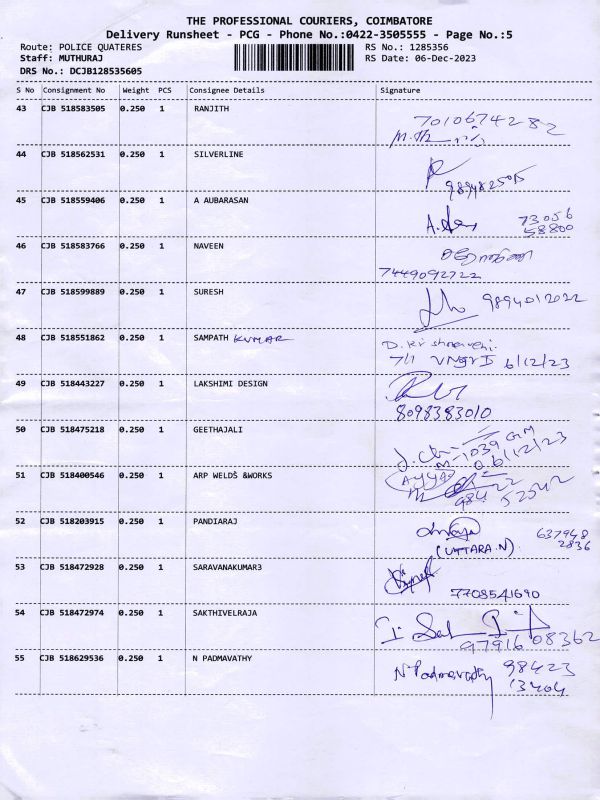 THE PROFESSIONAL COURIERS, COIMBATORE
Delivery Runsheet - PCG - Phone No.:0422-3505555 - Page No.:5
Route: POLICE QUATERES RS No.: 1285356
Staff: MUTHURAJ RS Date: 06-Dec-2023
DRS No.: DCJB128535605
S No Consignment No Weight PCS Consignee Details Signature
43 CJB 518583505 0.250 1 RANJITH
7010674282
44 CJB 518562531 0.250 1 SILVERLINE
45 CJB 518559406 0.250 1 A AUBARASAN
73056
58800
46 CJB 518583766 0.250 1 NAVEEN
7449092722
47 CJB 518599889 0.250 1 SURESH
9894012022
48 CJB 518551862 0.250 1 SAMPATH KUMAR
7/1 VNGR II 6/12/23
49 CJB 518443227 0.250 1 LAKSHIMI DESIGN
8098383010
50 CJB 518475218 0.250 1 GEETHAJALI
M-1039
51 CJB 518400546 0.250 1 ARP WELDŠ &WORKS
52 CJB 518203915 0.250 1 PANDIARAJ
637948
2836
(UTTARA.N)
53 CJB 518472928 0.250 1 SARAVANAKUMAR3
7708541690
54 CJB 518472974 0.250 1 SAKTHIVELRAJA
97916 08362
55 CJB 518629536 0.250 1 N PADMAVATHY
N.Padmavathy 98423
13404